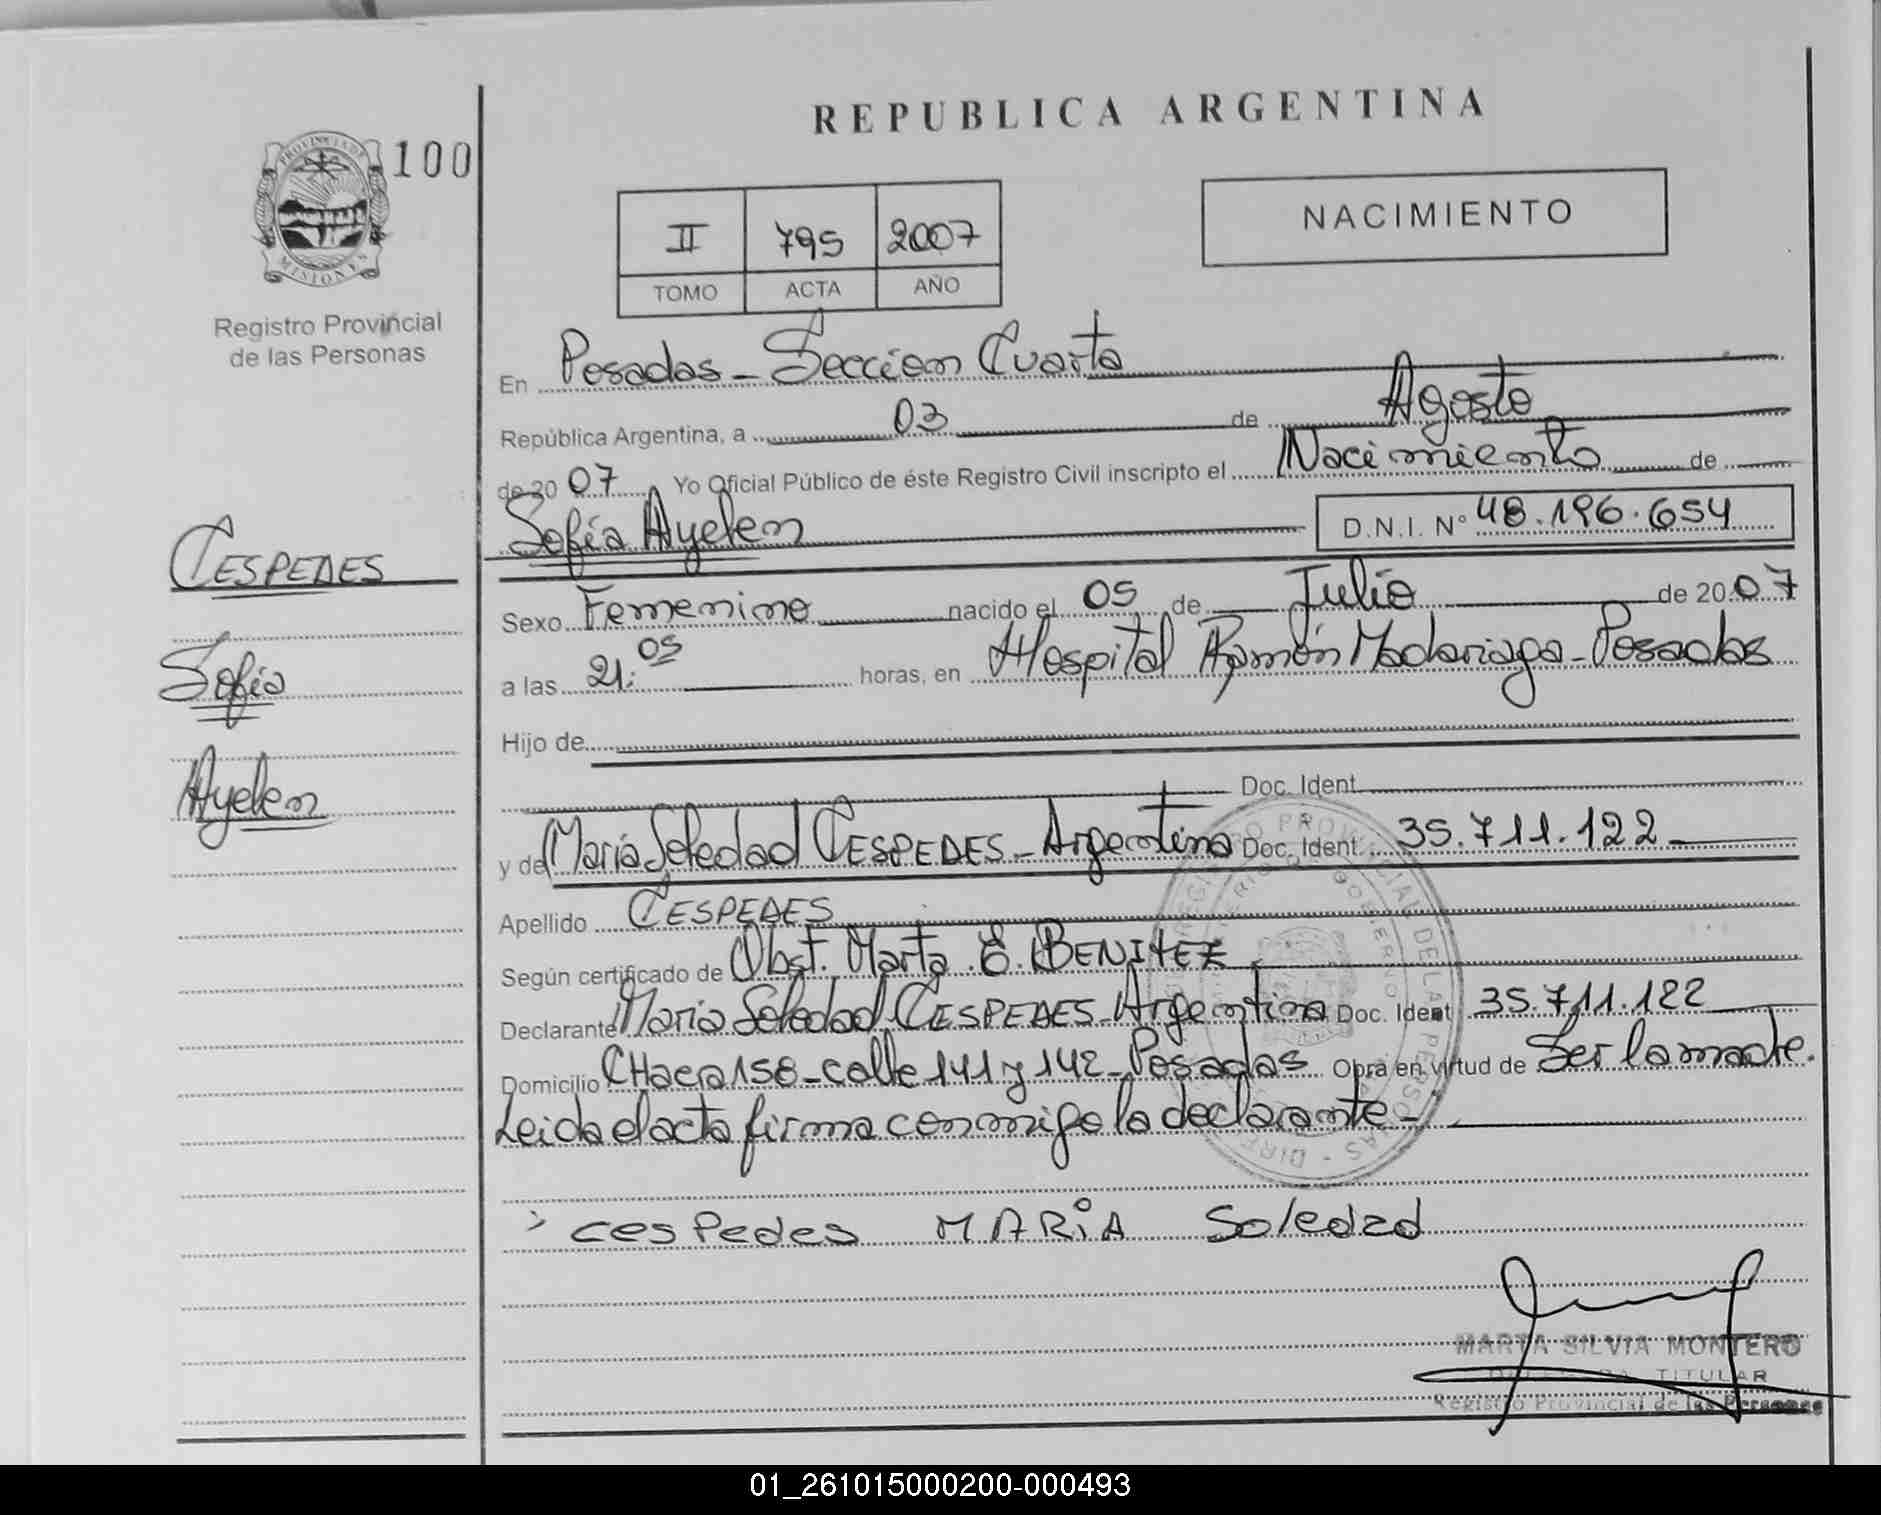 REPUBLICA ARGENTINA
PROVINCIA DE
MISIONES
100
Registro Provincial
de las Personas
II 795 2007
TOMO ACTA AÑO
NACIMIENTO
En Posadas - Seccion Cuarta
República Argentina, a 03 de Agosto
de 20 07 Yo Oficial Público de éste Registro Civil inscripto el Nacimiento de
Sofía Ayelen D.N.I. N° 48.196.654
CESPEDES
Sofía
Ayelen
Sexo Femenino nacido el 05 de Julio de 20 07
a las 21:05 horas, en Hospital Ramón Madariaga - Posadas
Hijo de
Doc. Ident.
y de María Soledad CESPEDES - Argentina Doc. Ident. 35.711.122 -
Apellido CESPEDES
Según certificado de Obst. Marta E. BENITEZ
Declarante María Soledad CESPEDES - Argentina Doc. Ident 35.711.122
Domicilio CHacra 158 - calle 141 y 142 - Posadas Obra en virtud de Ser la madre.
Leida el acta firma conmigo la declarante -
cesPedes MARiA Soledad
MARTA SILVIA MONTERO
TITULAR
Registro Provincial de las Personas
01_261015000200-000493